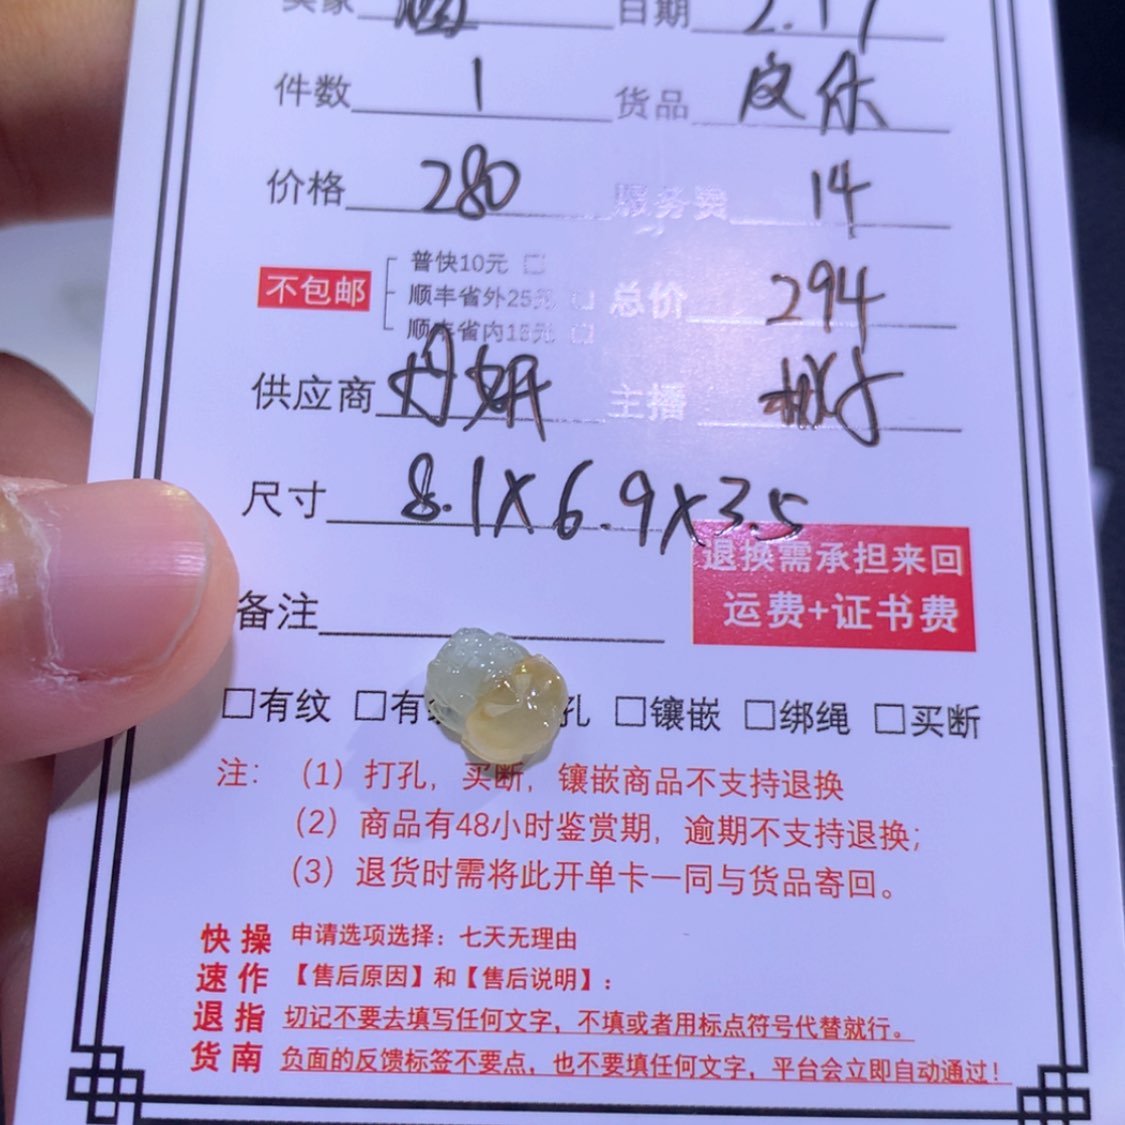 买家 日期 2.17
件数 1 货品 皮休
价格 280 服务费 14
普快10元
不包邮 顺丰省外25元 总价 294
顺丰省内15元
供应商 丹妍 主播
尺寸 8.1X6.9X3.5
退换需承担来回
备注 运费+证书费
有纹 有 孔 镶嵌 绑绳 买断
注：（1）打孔，买断，镶嵌商品不支持退换
（2）商品有48小时鉴赏期，逾期不支持退换；
（3）退货时需将此开单卡一同与货品寄回。
快操 申请选项选择：七天无理由
速作 【售后原因】和【售后说明】：
退指 切记不要去填写任何文字，不填或者用标点符号代替就行。
货南 负面的反馈标签不要点，也不要填任何文字，平台会立即自动通过！